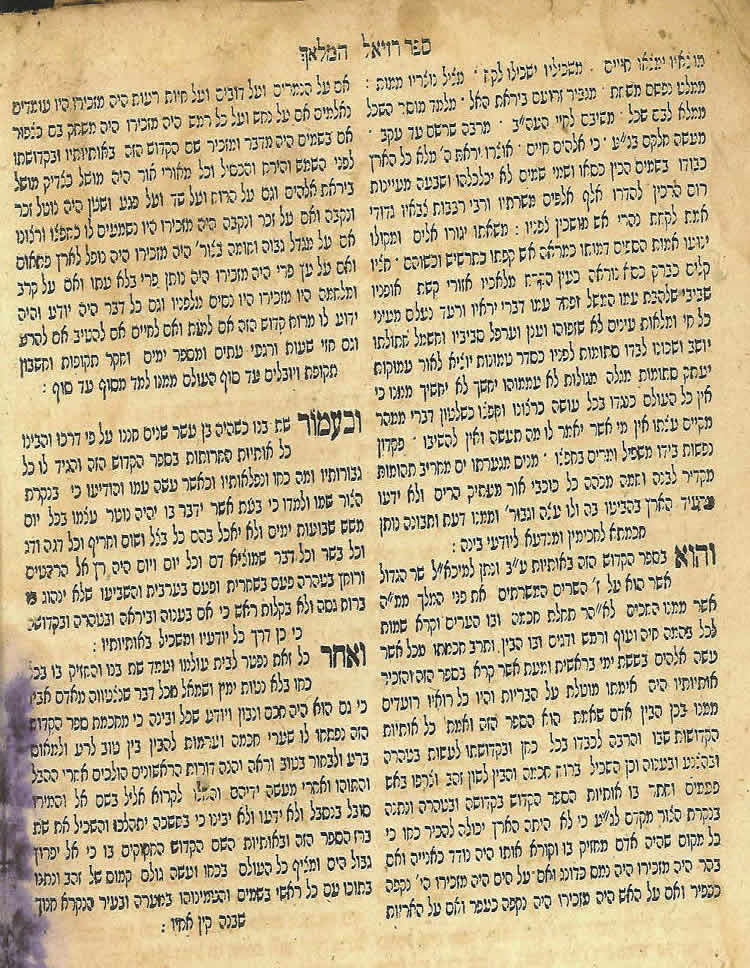 ספר רזיאל המלאך
מוצאיו ימצאו חיים · משכיליו ישכילו לקח · מציל נוצריו ממות :
ממלט נפשם משחת · מגביר זרועם ביראת האל · מלמד מוסר השכל
ממלא לבם שכל · משיבם לחיי העה"ב · מרבה שרשם עד עקב ·
מעשה חלקם בג"ע · כי אלהים חיים · אוצרו יראת ה' מלא כל הארץ
כבודו בשמים הכין כסאו ושמי שמים לא יכלכלהו ושבעה מעיינות
רום הרכין להדרו אלף אלפים משרתיו ורבי רבבות צבאיו גדודי
אמת לקחת נהרי אש מושכין לפניו : משאתו יגורו אלים ומקולו
יזועו אמות הספים דמותו כמראה אש קפחו כתרשיש וכשוהם · חציו
קלים כברק כסא נוראה כעין הקרח מלאכיו אזורי קשת אופניו
שביבי שלהבת עמו המשל ופחד עמו דברי יראיו ורעד נעלם מעיני
כל חי ומלאות עינים לא שזפוהו וענן וערפל סביביו וחשמל
יושב ושכונו לבדו סתומות לפניו כסדר טמונות יוציא לאור עמוקות
יעתק סתומות מגלה מגולות לא עממוהו יחשך לא יחשיך ממנו כי
אין כל העולם כנגדו בכל עושה כרצונו וחפצו כשלטון דברי ממהר
מקיים עצתו אין מי אשר יאמר לו מה תעשה ואין להשיבו · פקדון
נפשות בידו משפיל ומרים בחפצו · מנים מגערתו ים מחריב תהומות
מקדיר לבנה וחמה מכהה כל כוכבי אור מעתיק הרים ולא ידעו
מרעיד הארץ בהביטו בה ולו עצה וגבור' וממנו דעת ותבונה נותן
חכמתא לחכימין ומנדעא ליודעי בינה :
והוא בספר הקדוש הזה באותיות ע"ב ונתן למיכא"ל שר הגדול
אשר הוא על ז' השרים המשרתים את פני המלך ממ"ה
אשר ממנו חכים לא"הר תחלת חכמה ובו הערים וקרא שמות
לכל בהמה חיה ועוף ורמש ודגים ובו הבין ותרב חכמתו מכל אשר
עשה אלהים בששת ימי בראשית ומעת אשר קרא בספר הזה והזכיר
אותיותיו היה אימתו מוטלת על הבריות והיו כל רואיו רועדים
ממנו בכן הבין אדם שאמת הוא הספר הזה ואמת כל אותיות
הקדושות שבו והרבה לכבדו בכל כחו ובקדושתו לעשות בטהרה
ובהצנע ובענוה וכן השכיל ברוח חכמה והבין לשון זהב וצרפו באש
פחמים וחתך בו אותיות הספר הקדוש בקדושה ובטהרה ונתנה
בנקרת הצור מקדם לג"ע כי לא היתה הארץ יכולה להכיר כחו כי
בכל מקום שהיה אדם מחזיק בו וקורא אותו היה נודד כאנייה ואם
בהר היה מזכירו היה נמס כדונג ואם על הים היה מזכירו הי' נקפה
כעפיר ואם על האש היה מזכירו היה נקפה כעפר ואם על האריות
אם על הנמרים ועל דובים ועל חיות רעות היה מזכירו היו עומדים
נאלמים אם על נחש ועל כל רמש היה מזכירו היה משחק בם כצפור
אם בשמים היה מדבר ומזכיר שם הקדוש הזה באותיותיו ובקדושתו
לפני השמש והירח והכסיל וכל מאורי אור היה מושל כצדיק מושל
ביראת אלהים וגם על הרוח ועל שד ועל פגע ושטן היה נוטל זכר
ונקבה ואם על זכר ונקבה היה מזכירו היו נשמעים לו כחפצו ורצונו
אם על מגדל גבוה וחומה בצור' היה מזכירו היה נופל לארץ פתאום
ואם על עץ פרי היה מזכירו היה נותן פרי בלא עתו ואם על קרב
ומלחמה היו מזכירו היו נסים מלפניו וגם כל דבר היה יודע והיה
ידוע לו מרוח קדוש הזה אם למות ואם לחיים אם להטיב אם להרע
וגם חזי שעות ורגעי עתים ומספר ימים וחקר תקופות וחשבון
תקופת ויובלים עד סוף העולם ממנו למד מסוף עד סוף :
ובעמוד שת בנו כשהיה בן עשר שנים חננו על פי דרכו והבינו
כל אותיות החרותות בספר הקדוש הזה והגיד לו כל
גבורותיו ומה כחו ונפלאותיו וכאשר עשה עמו והודיעו כי בנקרת
הצור שמו ולמדו כי בעת אשר ידבר בו יהיה נוטר עצמו בכל יום
משש שבועות ימים ולא יאכל בהם כל בצל ושום וחריף וכל דגה ודג
וכל בשר וכל דבר שמוציא דם וכל יום ויום היה רץ אל הרקטים
ורוחץ בטהרה פעם בשחרית ופעם בערבית והשביעו שלא ינהוג
ברוח גסה ולא בקלות ראש כי אם בענוה וביראה ובטהרה ובקדושה
כי כן דרך כל יודעיו ומשכיל באותיותיו :
ואחר כל זאת נפטר לבית עולמו ועמד שת בנו והחזיק בו בכל
כחו בלא נטות ימין ושמאל מכל דבר שנצטווה מאדם אביו
כי גם הוא היה חכם ונבון ויודע שכל ובינה כי מחכמת ספר הקדוש
הזה נפתחו לו שערי חכמה וערמות להבין בין טוב לרע ולמאוס
ברע ולבחור בטוב וראה והנה דורות הראשונים הולכים אחרי ההבל
והתוהו ואחרי מעשה ידיהם לקרוא אליל בשם אל והמירו
סובל בנסבל ולא ידעו ולא יבינו כי בחשכה יתהלכו והשכיל את שת
ברז הספר הזה ובאותיות השם הקדוש החקוקים בו כי אל יפרוץ
גבול הים ומציף כל העולם בכחו ועשה גולם קמוס של זהב ונתנו
בתוכו עם כל ראשי בשמים והטמינוהו במערה ובעיר הנקרא חנוך
שבנה קין אחיו :